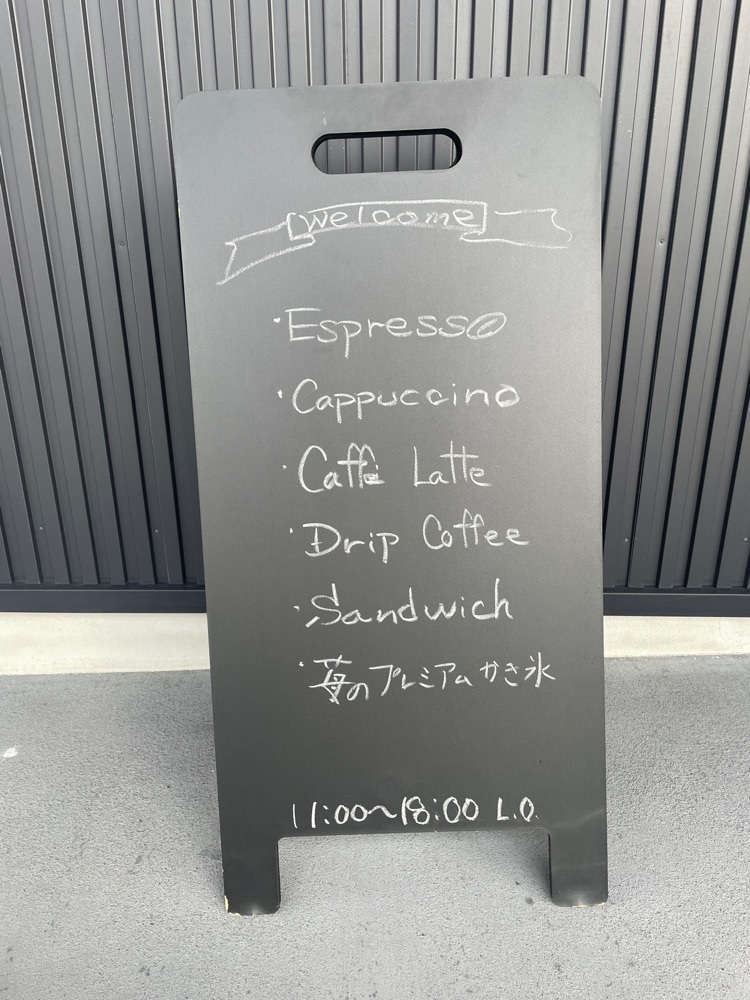 welcome
・Espresso
・Cappuccino
・Caffe Latte
・Drip Coffee
・Sandwich
・苺のプレミアムかき氷
11:00~18:00 L.O.